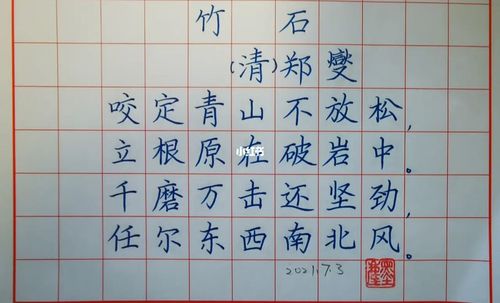 竹石
(清)郑燮
咬定青山不放松,
立根原在破岩中。
千磨万击还坚劲,
任尔东西南北风。
2021.7.3
小红书